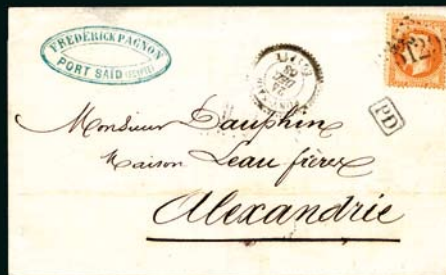 FREDERICK PAGNON
PORT SAÏD (EGYPTE)
24
DEC
68
PD
Monsieur Dauphin
Maison Leau frères
Alexandrie